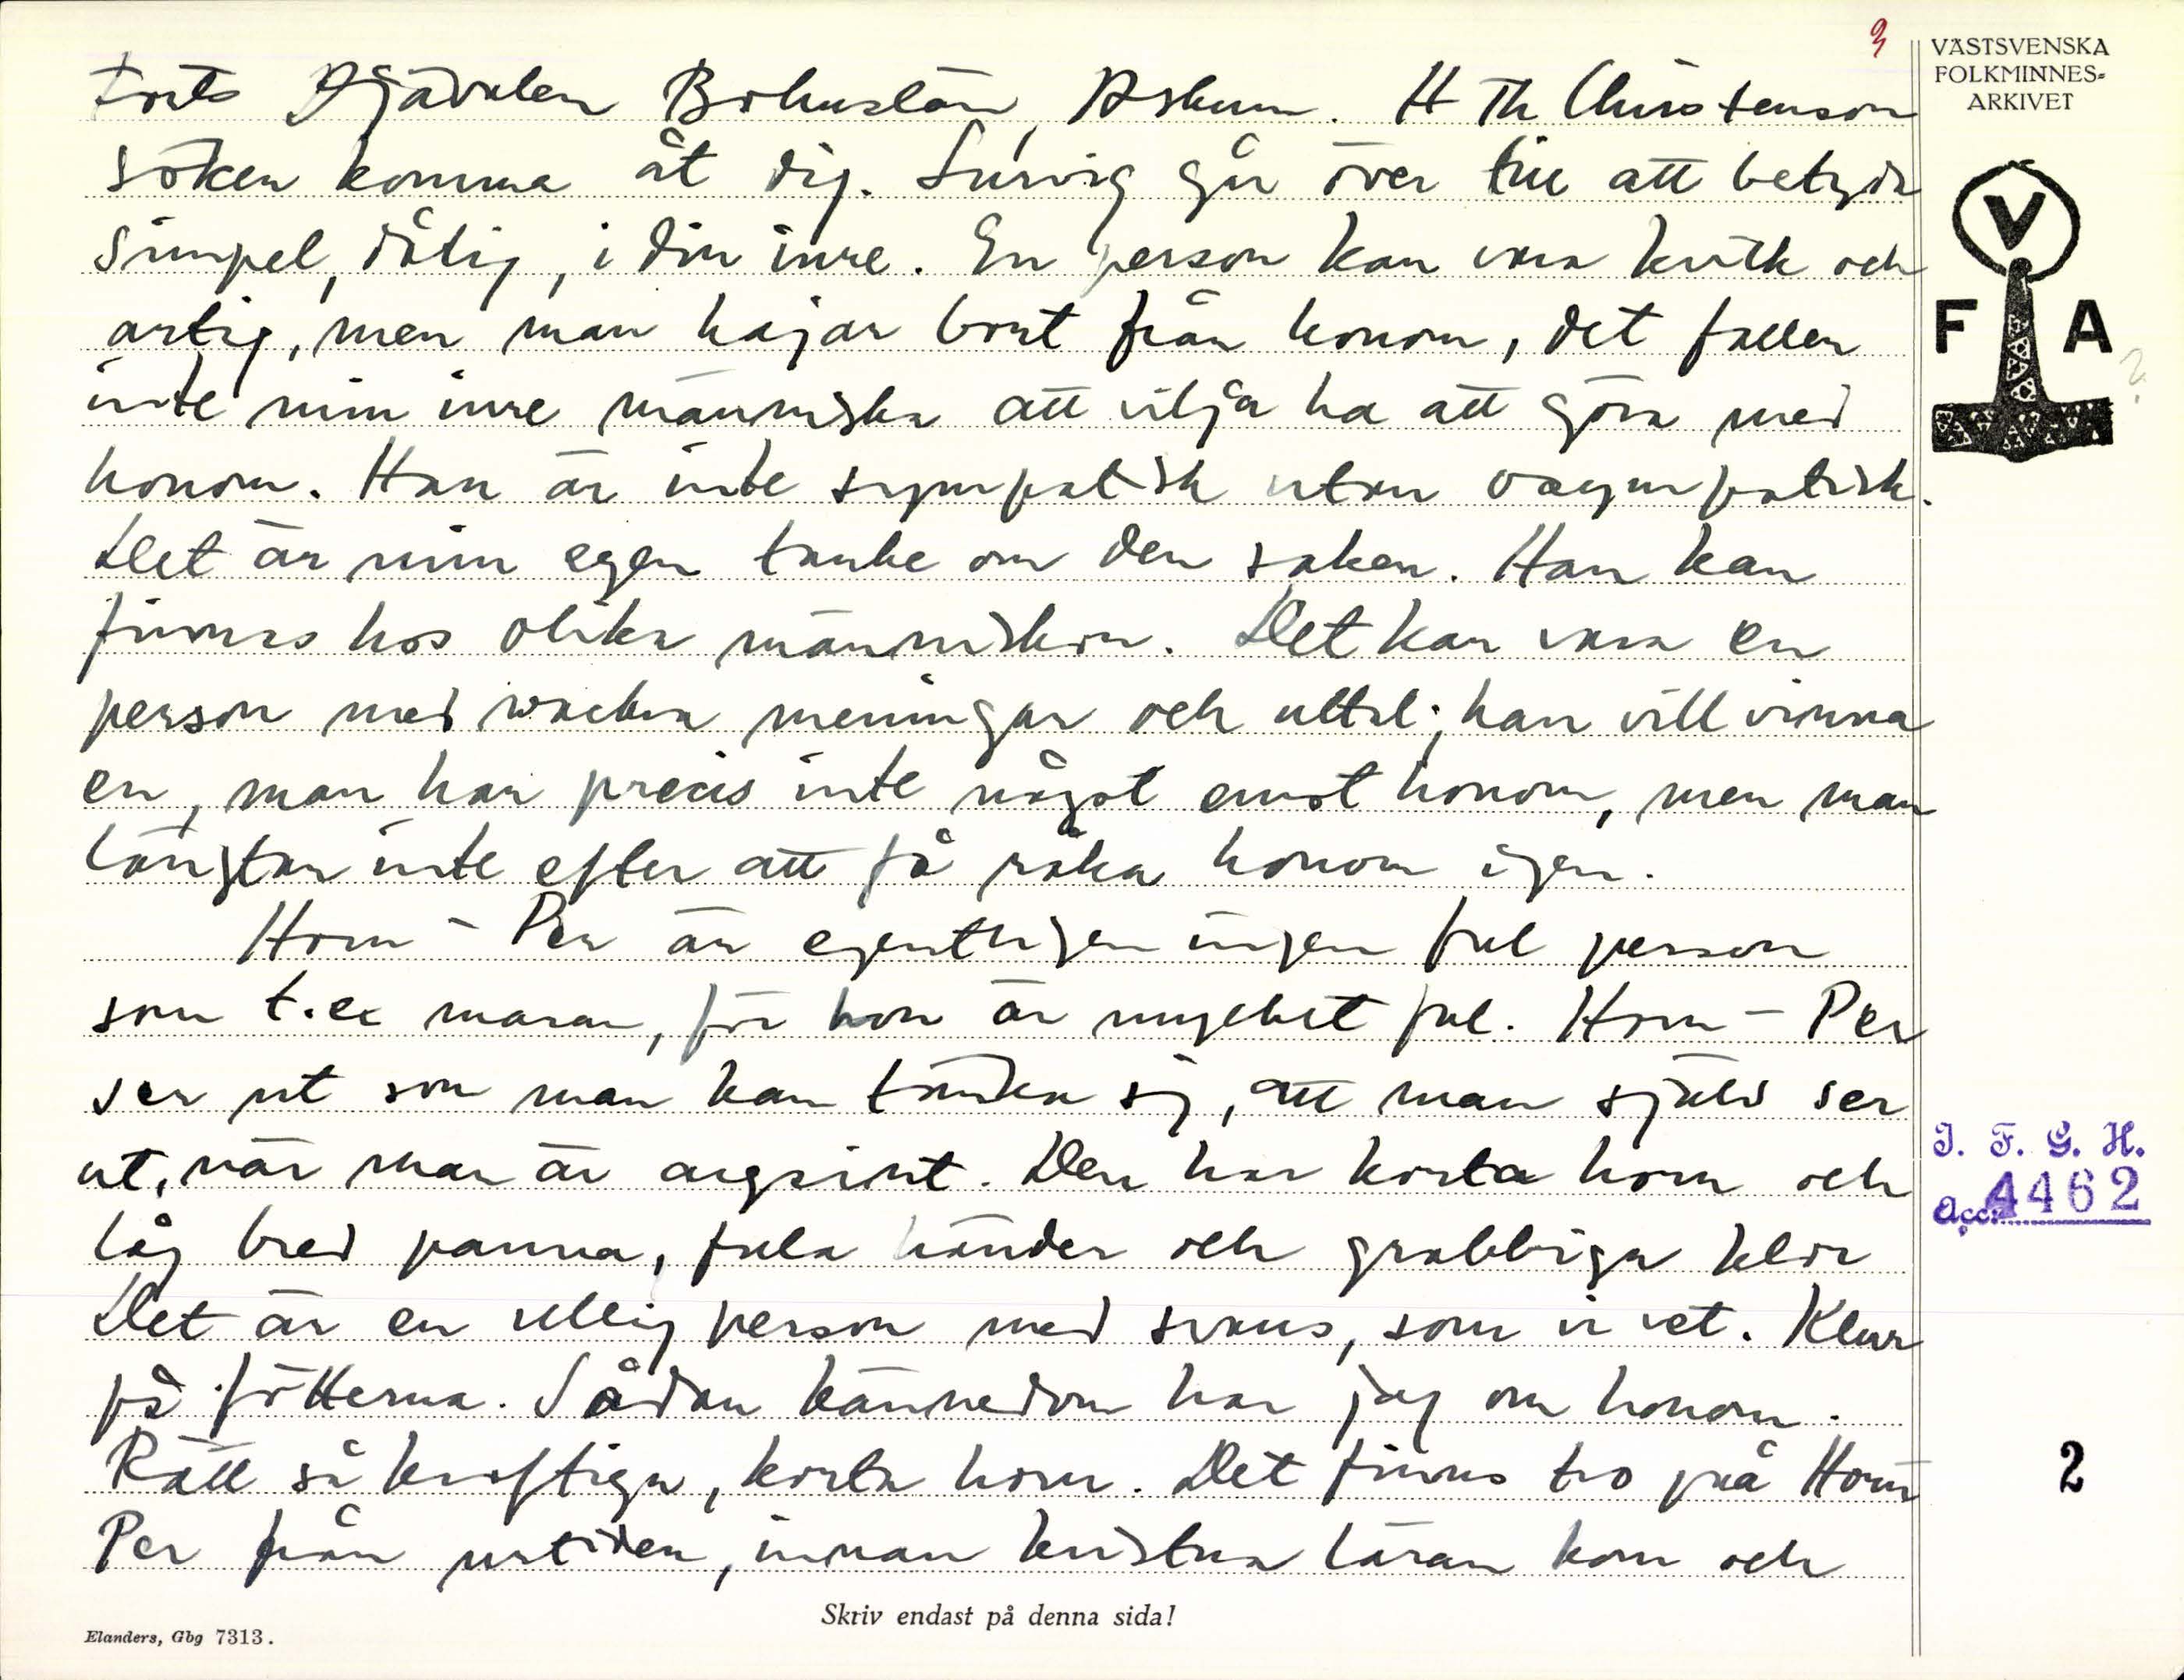 3
forts Djävulen Bohuslän, Askum. H Th Christenson
söker komma åt dig. Lurvig går över till att betyda
simpel, dålig, i din inre. En person kan vara kvick och
artig, men man hajar bort från honom, det faller
inte min inre människa att vilja ha att göra med
honom. Han är inte sympatisk utan osympatisk.
Det är min egen tanke om den saken. Han kan
finnas hos olika människor. Det kan vara en
person med vackra meningar och uttal; han vill vinna
en, man har precis inte något emot honom, men man
längtar inte efter att få råka honom igen.
Horn-Per är egentligen ingen ful person
som t.ex maran, för hon är mycket ful. Horn-Per
ser ut som man kan tänka sig, att man själv ser
ut, när man är argsint. Den har korta horn och
låg bred panna, fula händer och grabbiga klor
Det är en ullig person med svans, som vi vet. Klor
på fötterna. Sådan kännedom har jag om honom.
Rätt så kraftiga, korta horn. Det finns tro på Horn
Per från urtiden, innan kristna läran kom och
Skriv endast på denna sida!
Elanders, Gbg 7313.
VÄSTSVENSKA
FOLKMINNES=
ARKIVET
V
F A
I. F. G. H.
Acc. 4462
2